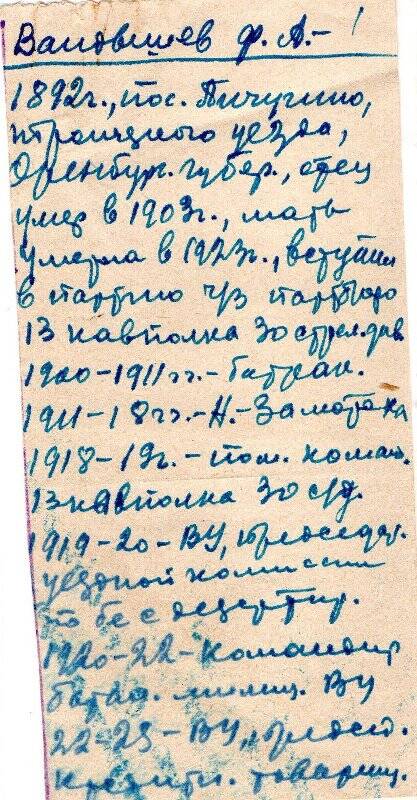 Вандышев Ф. А. - !
1892г., пос. Пичугино,
Троицкого уезда,
Оренбург. губер., отец
умер в 1903г., мать
умерла в 1923г., вступил
в партию ч/з партбюро
13 кавполка 30 стрел. див.
1900-1911гг. - батрак.
1911-18гг. - Н.-
1918-19г. - пом. команд.
13 кавполка 30 с/д.
1919-20 - ВУ, председ.
уездной комиссии
по б с дезертир.
1920-22 - командир
батал. милиц. ВУ
22-23 - ВУ, председ.
кредитн. товарищ.